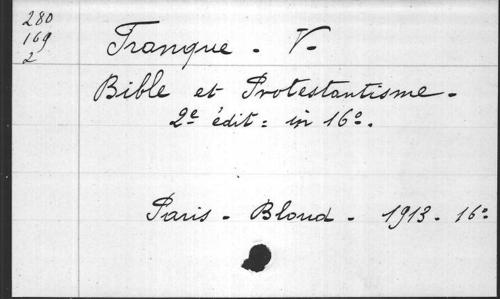 280
169
2
Franque - V-
Bible et Protestantisme -
2e édit = in 16º.
Paris - Bloud - 1913 - 16º